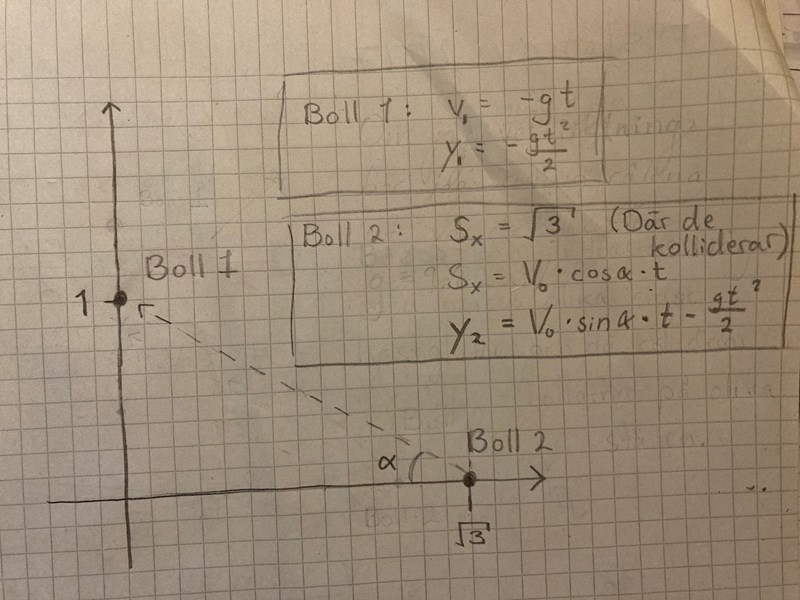 Boll 1: V₁ = -gt
y₁ = -gt²/2
Boll 2: Sₓ = √3 (Där de
kolliderar)
Sₓ = V₀·cosα·t
y₂ = V₀·sinα·t - gt²/2
Boll 1
1
Boll 2
α
√3